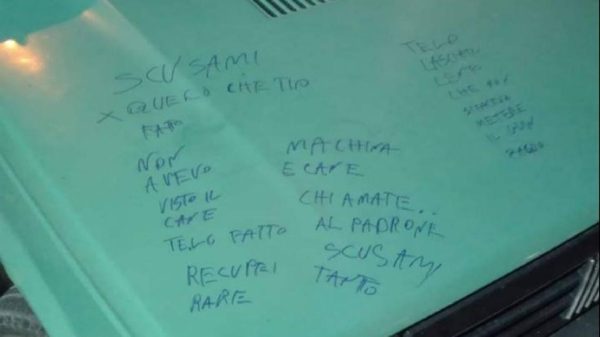 SCUSAMI
X QUERO CHE TIO
FATO
NON
AVEVO
VISTO IL
CANE
TELO FATTO
RECUPEI
RARE
MACHINA
E CANE
CHIAMATE..
AL PADRONE
SCUSAMI
TANTO
TELO
LASCIATO
CHE POI
METERE
IL